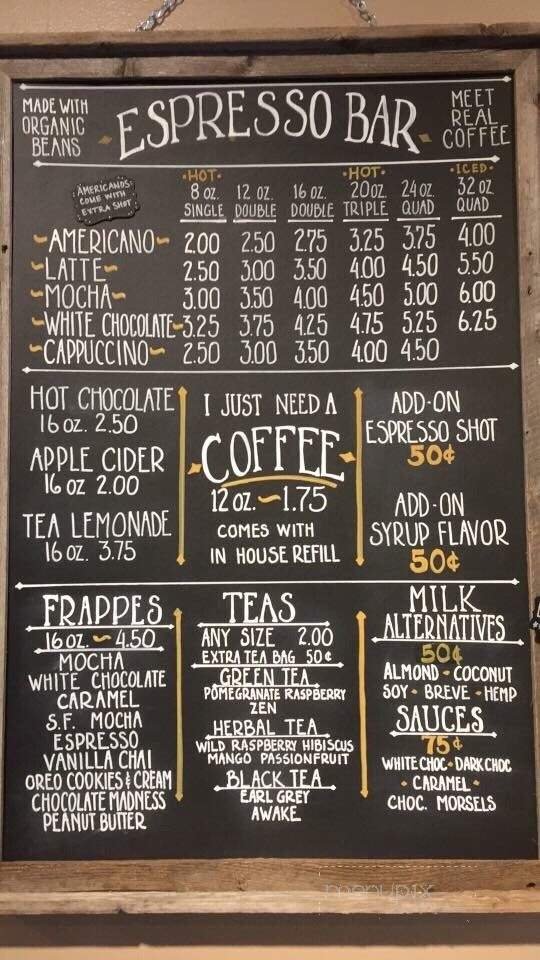 MADE WITH
ORGANIC
BEANS
ESPRESSO BAR
MEET
REAL
COFFEE
AMERICANOS
COME WITH
EXTRA SHOT
·HOT· ·HOT· ·ICED·
8 OZ. 12 OZ. 16 OZ. 20 OZ. 24 OZ. 32 OZ
SINGLE DOUBLE DOUBLE TRIPLE QUAD QUAD
~AMERICANO~ 2.00 2.50 2.75 3.25 3.75 4.00
~LATTE~ 2.50 3.00 3.50 4.00 4.50 5.50
~MOCHA~ 3.00 3.50 4.00 4.50 5.00 6.00
~WHITE CHOCOLATE~ 3.25 3.75 4.25 4.75 5.25 6.25
~CAPPUCCINO~ 2.50 3.00 3.50 4.00 4.50
HOT CHOCOLATE
16 OZ. 2.50
APPLE CIDER
16 OZ 2.00
TEA LEMONADE
16 OZ. 3.75
I JUST NEED A
COFFEE
12 OZ. ~ 1.75
COMES WITH
IN HOUSE REFILL
ADD-ON
ESPRESSO SHOT
50¢
ADD-ON
SYRUP FLAVOR
50¢
FRAPPES
16 OZ. ~ 4.50
MOCHA
WHITE CHOCOLATE
CARAMEL
S.F. MOCHA
ESPRESSO
VANILLA CHAI
OREO COOKIES & CREAM
CHOCOLATE MADNESS
PEANUT BUTTER
TEAS
ANY SIZE 2.00
EXTRA TEA BAG 50¢
GREEN TEA
POMEGRANATE RASPBERRY
ZEN
HERBAL TEA
WILD RASPBERRY HIBISCUS
MANGO PASSIONFRUIT
BLACK TEA
EARL GREY
AWAKE
MILK
ALTERNATIVES
50¢
ALMOND · COCONUT
SOY · BREVE · HEMP
SAUCES
75¢
WHITE CHOC · DARK CHOC
· CARAMEL ·
CHOC. MORSELS
menupix